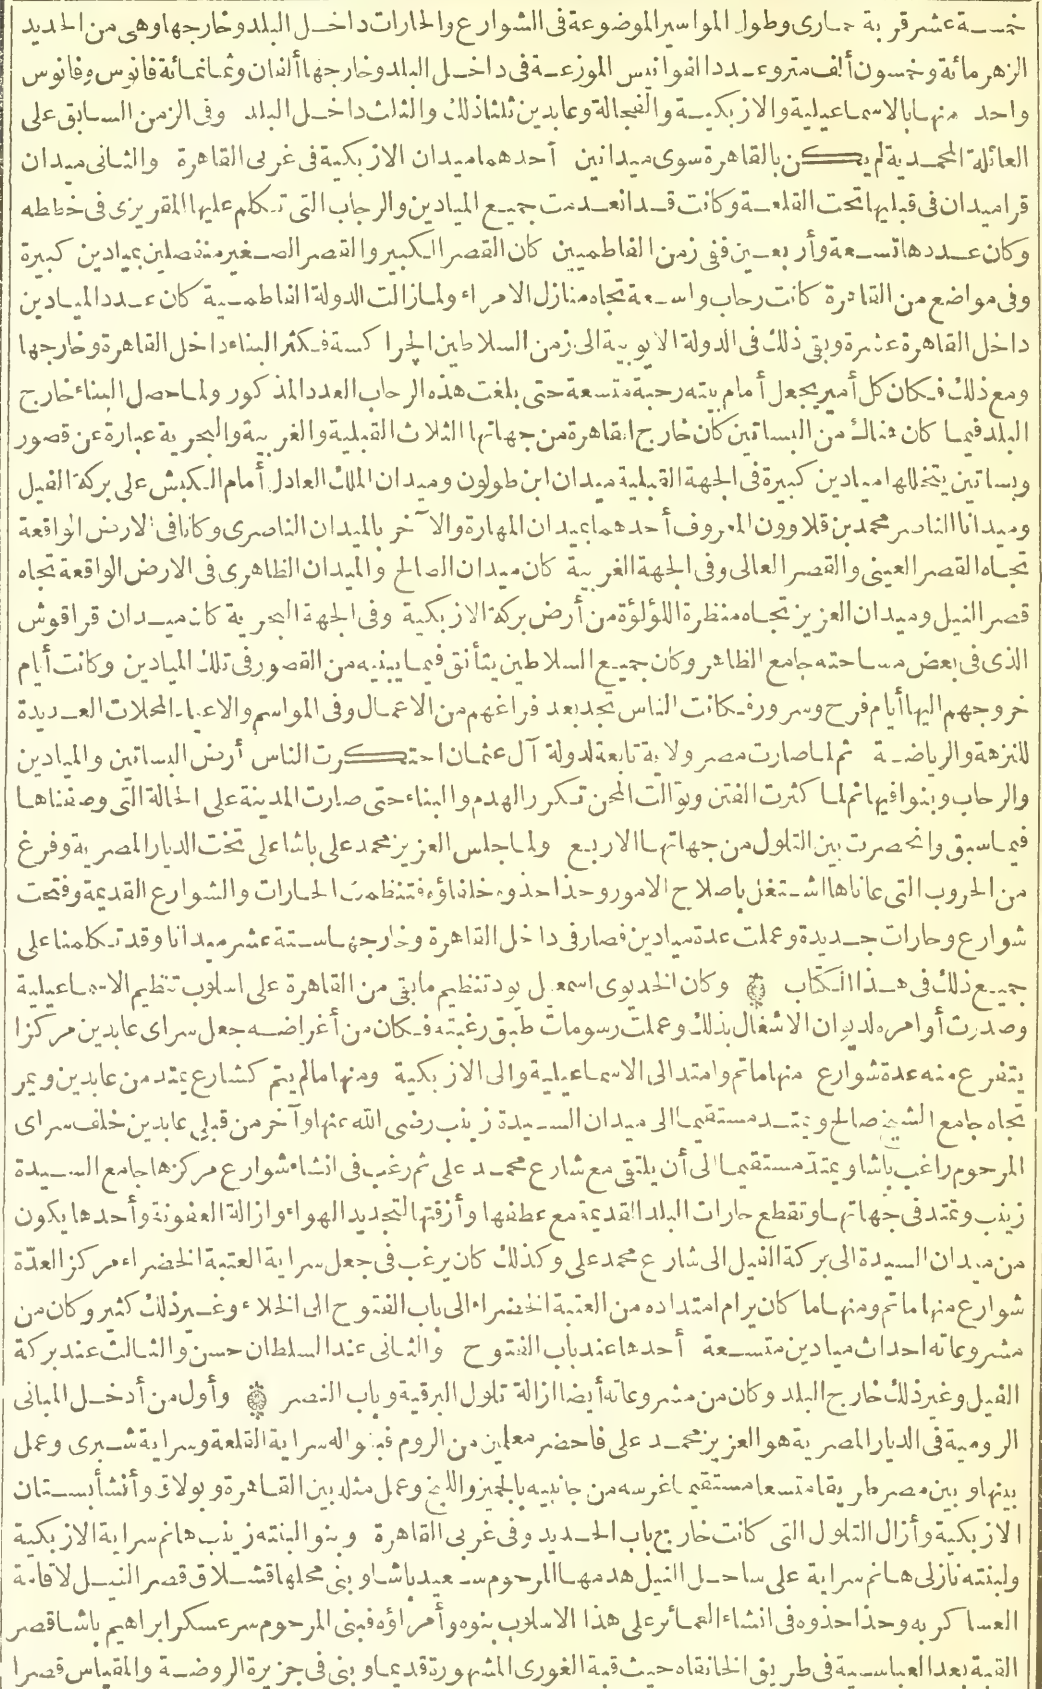 خمسة عشر قربة جارى وطول المواسير الموضوعة فى الشوارع والحارات داخل البلد وخارجها وهى من الحديد
الزهر مائة وخمسون ألف متر وعدد الفوانيس الموزعة فى داخل البلد وخارجها ألفان وثمانمائة فانوس وفانوس
واحد منها بالاسماعيلية والازبكية والفجالة وعابدين ثلثا ذلك والثلث داخل البلد وفى الزمن السابق على
العائلة المحمدية لم يكن بالقاهرة سوى ميدانين أحدهما ميدان الازبكية فى غربى القاهرة والثانى ميدان
قراميدان فى قبليها تحت القلعة وكانت قد انعدمت جميع الميادين والرحاب التى تكلم عليها المقريزى فى خططه
وكان عددها تسعة وأربعين ففى زمن الفاطميين كان القصر الكبير والقصر الصغير منفصلين بميادين كبيرة
وفى مواضع من القاهرة كانت رحاب واسعة تجاه منازل الامراء ولما زالت الدولة الفاطمية كان عدد الميادين
داخل القاهرة عشرة وبقى ذلك فى الدولة الايوبية الى زمن السلاطين الجراكسة فكثر البناء داخل القاهرة وخارجها
ومع ذلك فكان كل أمير يجعل أمام بيته رحبة متسعة حتى بلغت هذه الرحاب العدد المذكور ولما حصل البناء خارج
البلد فيما كان هناك من البساتين كان خارج القاهرة من جهاتها الثلاث القبلية والغربية والبحرية عبارة عن قصور
وبساتين يتخللها ميادين كبيرة فى الجهة القبلية ميدان ابن طولون وميدان الملك العادل أمام الكبش على بركة الفيل
وميدانا الناصر محمد بن قلاوون المعروف أحدهما بميدان المهارة والآخر بالميدان الناصرى وكانا فى الارض الواقعة
تجاه القصر العينى والقصر العالى وفى الجهة الغربية كان ميدان الصالح والميدان الظاهرى فى الارض الواقعة تجاه
قصر النيل وميدان العزيز تجاه منظرة اللؤلؤة من أرض بركة الازبكية وفى الجهة البحرية كان ميدان قراقوش
الذى فى بعض مساحته جامع الظاهر وكان جميع السلاطين يتأنق فيما يبنيه من القصور فى تلك الميادين وكانت أيام
خروجهم اليها أيام فرح وسرور فكانت الناس تجد بعد فراغهم من الاعمال وفى المواسم والاعياد المحلات العديدة
للنزهة والرياضة ثم لما صارت مصر ولاية تابعة لدولة آل عثمان احتكرت الناس أرض البساتين والميادين
والرحاب وبنوا فيها ثم لما كثرت الفتن وتوالت المحن تكرر الهدم والبناء حتى صارت المدينة على الحالة التى وصفناها
فيما سبق وانحصرت بين التلول من جهاتها الاربع ولما جلس العزيز محمد على باشا على تخت الديار المصرية وفرغ
من الحروب التى عاناها اشتغل باصلاح الامور وحذا حذوه خلفاؤه فتنظمت الحارات والشوارع القديمة وفتحت
شوارع وحارات جديدة وعملت عدة ميادين فصار فى داخل القاهرة وخارجها ستة عشر ميدانا وقد تكلمنا على
جميع ذلك فى هذا الكتاب وكان الخديوى اسمعيل يود تنظيم ما بقى من القاهرة على اسلوب تنظيم الاسماعيلية
وصدرت أوامره لديوان الاشغال بذلك وعملت رسومات طبق رغبته فكان من أغراضه جعل سراى عابدين مركزا
يتفرع منه عدة شوارع منها ما تم وامتد الى الاسماعيلية والى الازبكية ومنها ما لم يتم كشارع يمتد من عابدين ويمر
تجاه جامع الشيخ صالح ويمتد مستقيما الى ميدان السيدة زينب رضى الله عنها وآخر من قبلى عابدين خلف سراى
المرحوم راغب باشا ويمتد مستقيما الى أن يلتقى مع شارع محمد على ثم رغب فى انشاء شوارع مركزها جامع السيدة
زينب وتمتد فى جهاتها وتقطع حارات البلد القديمة مع عطفها وأزقتها لتجديد الهواء وازالة العفونة وأحدها يكون
من ميدان السيدة الى بركة الفيل الى شارع محمد على وكذلك كان يرغب فى جعل سراية العتبة الخضراء مركز العدّة
شوارع منها ما تم ومنها ما كان يرام امتداده من العتبة الخضراء الى باب الفتوح الى الخلاء وغير ذلك كثير وكان من
مشروعاته احداث ميادين متسعة أحدها عند باب الفتوح والثانى عند السلطان حسن والثالث عند بركة
الفيل وغير ذلك خارج البلد وكان من مشروعاته أيضا ازالة تلول البرقية وباب النصر وأول من أدخل المبانى
الرومية فى الديار المصرية هو العزيز محمد على فاحضر معلمين من الروم فبنوا له سراية القلعة وسراية شبرى وعمل
بينها وبين مصر طريقا متسعا مستقيما غرسه من جانبيه بالجميز واللبخ وعمل مثله بين القاهرة وبولاق وأنشأ بستان
الازبكية وأزال التلول التى كانت خارج باب الحديد وفى غربى القاهرة وبنوا لبنته زينب هانم سراية الازبكية
ولبنته نازلى هانم سراية على ساحل النيل هدمها المرحوم سعيد باشا وبنى محلها قشلاق قصر النيل لاقامة
العساكر به وحذا حذوه فى انشاء العمائر على هذا الاسلوب بنوه وأمراؤه فبنى المرحوم سر عسكر ابراهيم باشا قصر
القبة بعد العباسية فى طريق الخانقاه حيث قبة الغورى المشهورة قديما وبنى فى جزيرة الروضة والمقياس قصرا